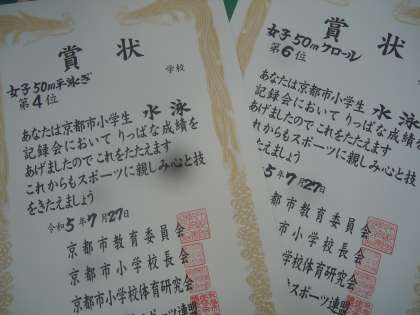 賞状
女子50m平泳ぎ
学校
第4位
あなたは京都市小学生 水泳
記録会において りっぱな成績を
あげましたので これをたたえます
これからもスポーツに親しみ心と技
をきたえましょう
令和5年7月27日
京都市教育委員会
京都市小学校長会
京都市小学校体育研究会
スポーツ連盟
賞状
女子50mクロール
第6位
学校
あなたは京都市小学生 水泳
記録会において りっぱな成績を
あげましたので これをたたえます
これからもスポーツに親しみ心と技
をきたえましょう
5年7月27日
都市教育委員会
市小学校長会
学校体育研究会
スポーツ連盟